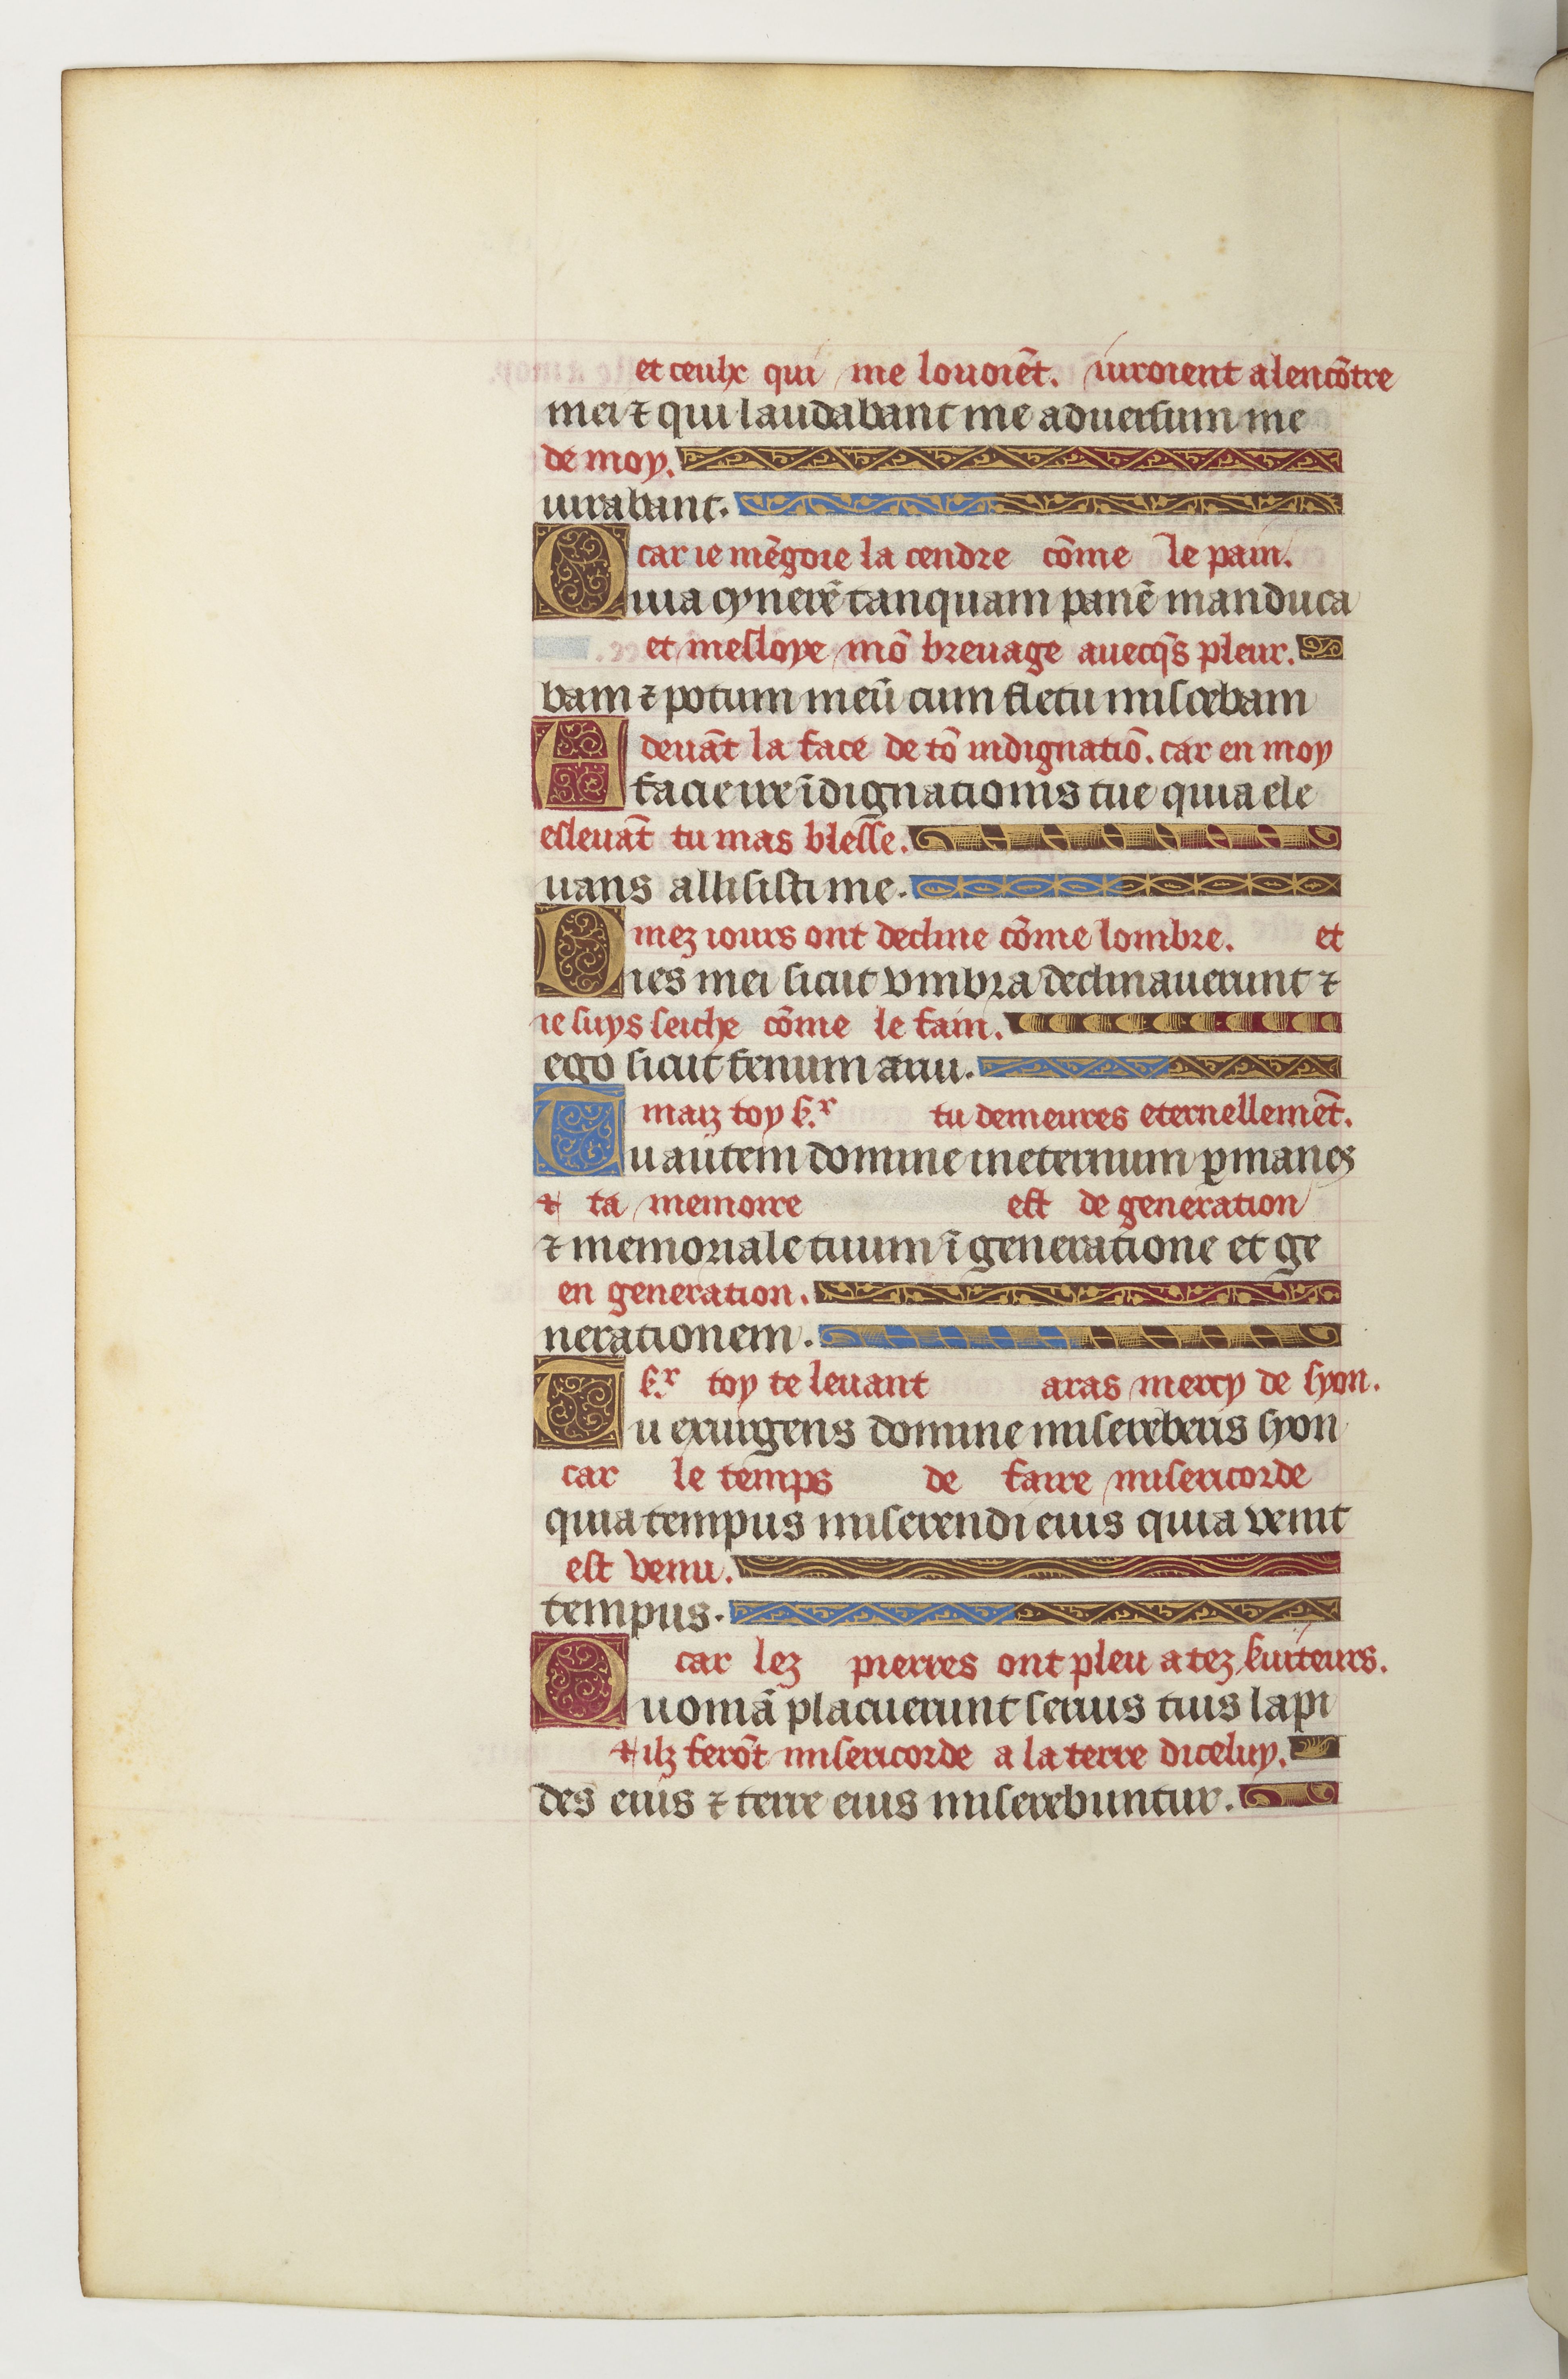 et ceulx qui me louoiẽt. iuroient alencõtre
mei ⁊ qui laudabant me aduersum me
de moy.
iurabant.
car ie mẽgoie la cendre cõme le pain.
Quia cynerẽ tanquam panẽ manduca
et mesloye mõ breuage auecq̃s pleur.
bam ⁊ potum meũ cum fletu miscebam
deuãt la face de tõ indignatiõ. car en moy
A facie ire ĩdignationis tue quia ele
esleuãt tu mas blesse.
uans allisisti me.
mez iours ont decline cõme lombre. et
Dies mei sicut vmbra declinauerunt ⁊
ie suys seiche cõme le fain.
ego sicut fenum arui.
maiz toy s.r tu demeures eternellemẽt.
Tu autem domine ineternum ꝑmanes
⁊ ta memoire est de generation
⁊ memoriale tuum ĩ generatione et ge
en generation.
nerationem.
s.r toy te leuant aras mercy de syon.
Tu exurgens domine misereberis syon
car le temps de faire misericorde
quia tempus miserendi eius quia venit
est venu.
tempus.
car lez pierres ont pleu a tez suiteurs.
Quoniã placuerunt seruis tuis lapi
⁊ ilz ferõt misericorde a la terre diceluy.
des eius ⁊ terre eius miserebuntur.